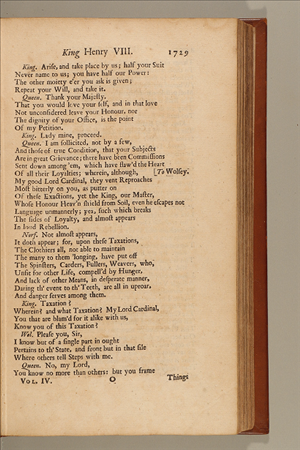 King Henry VIII. 1729
King. Arise, and take place by us; half your Suit
Never name to us; you have half our Power:
The other moiety e'er you ask is given;
Repeat your Will, and take it.
Queen. Thank your Majesty.
That you would love your self, and in that love
Not unconsidered leave your Honour, nor
The dignity of your Office, is the point
Of my Petition.
King. Lady mine, proceed.
Queen. I am sollicited, not by a few,
And those of true Condition, that your Subjects
Are in great Grievance; there have been Commissions
Sent down among 'em, which have flaw'd the Heart
Of all their Loyalties; wherein, although, [To Wolsey.
My good Lord Cardinal, they vent Reproaches
Most bitterly on you, as putter on
Of these Exactions, yet the King, our Master,
Whose Honour Heav'n shield from Soil, even he escapes not
Language unmannerly; yea, such which breaks
The sides of Loyalty, and almost appears
In loud Rebellion.
Norf. Not almost appears,
It doth appear; for, upon these Taxations,
The Clothiers all, not able to maintain
The many to them 'longing, have put off
The Spinsters, Carders, Fullers, Weavers, who,
Unfit for other Life, compell'd by Hunger,
And lack of other Means, in desperate manner,
Daring th' event to th' Teeth, are all in uproar,
And danger serves among them.
King. Taxation?
Wherein? and what Taxation? My Lord Cardinal,
You that are blam'd for it alike with us,
Know you of this Taxation?
Wol. Please you, Sir,
I know but of a single part in ought
Pertains to th' State, and front but in that file
Where others tell Steps with me.
Queen. No, my Lord,
You know no more than others: but you frame
VOL. IV. O Things